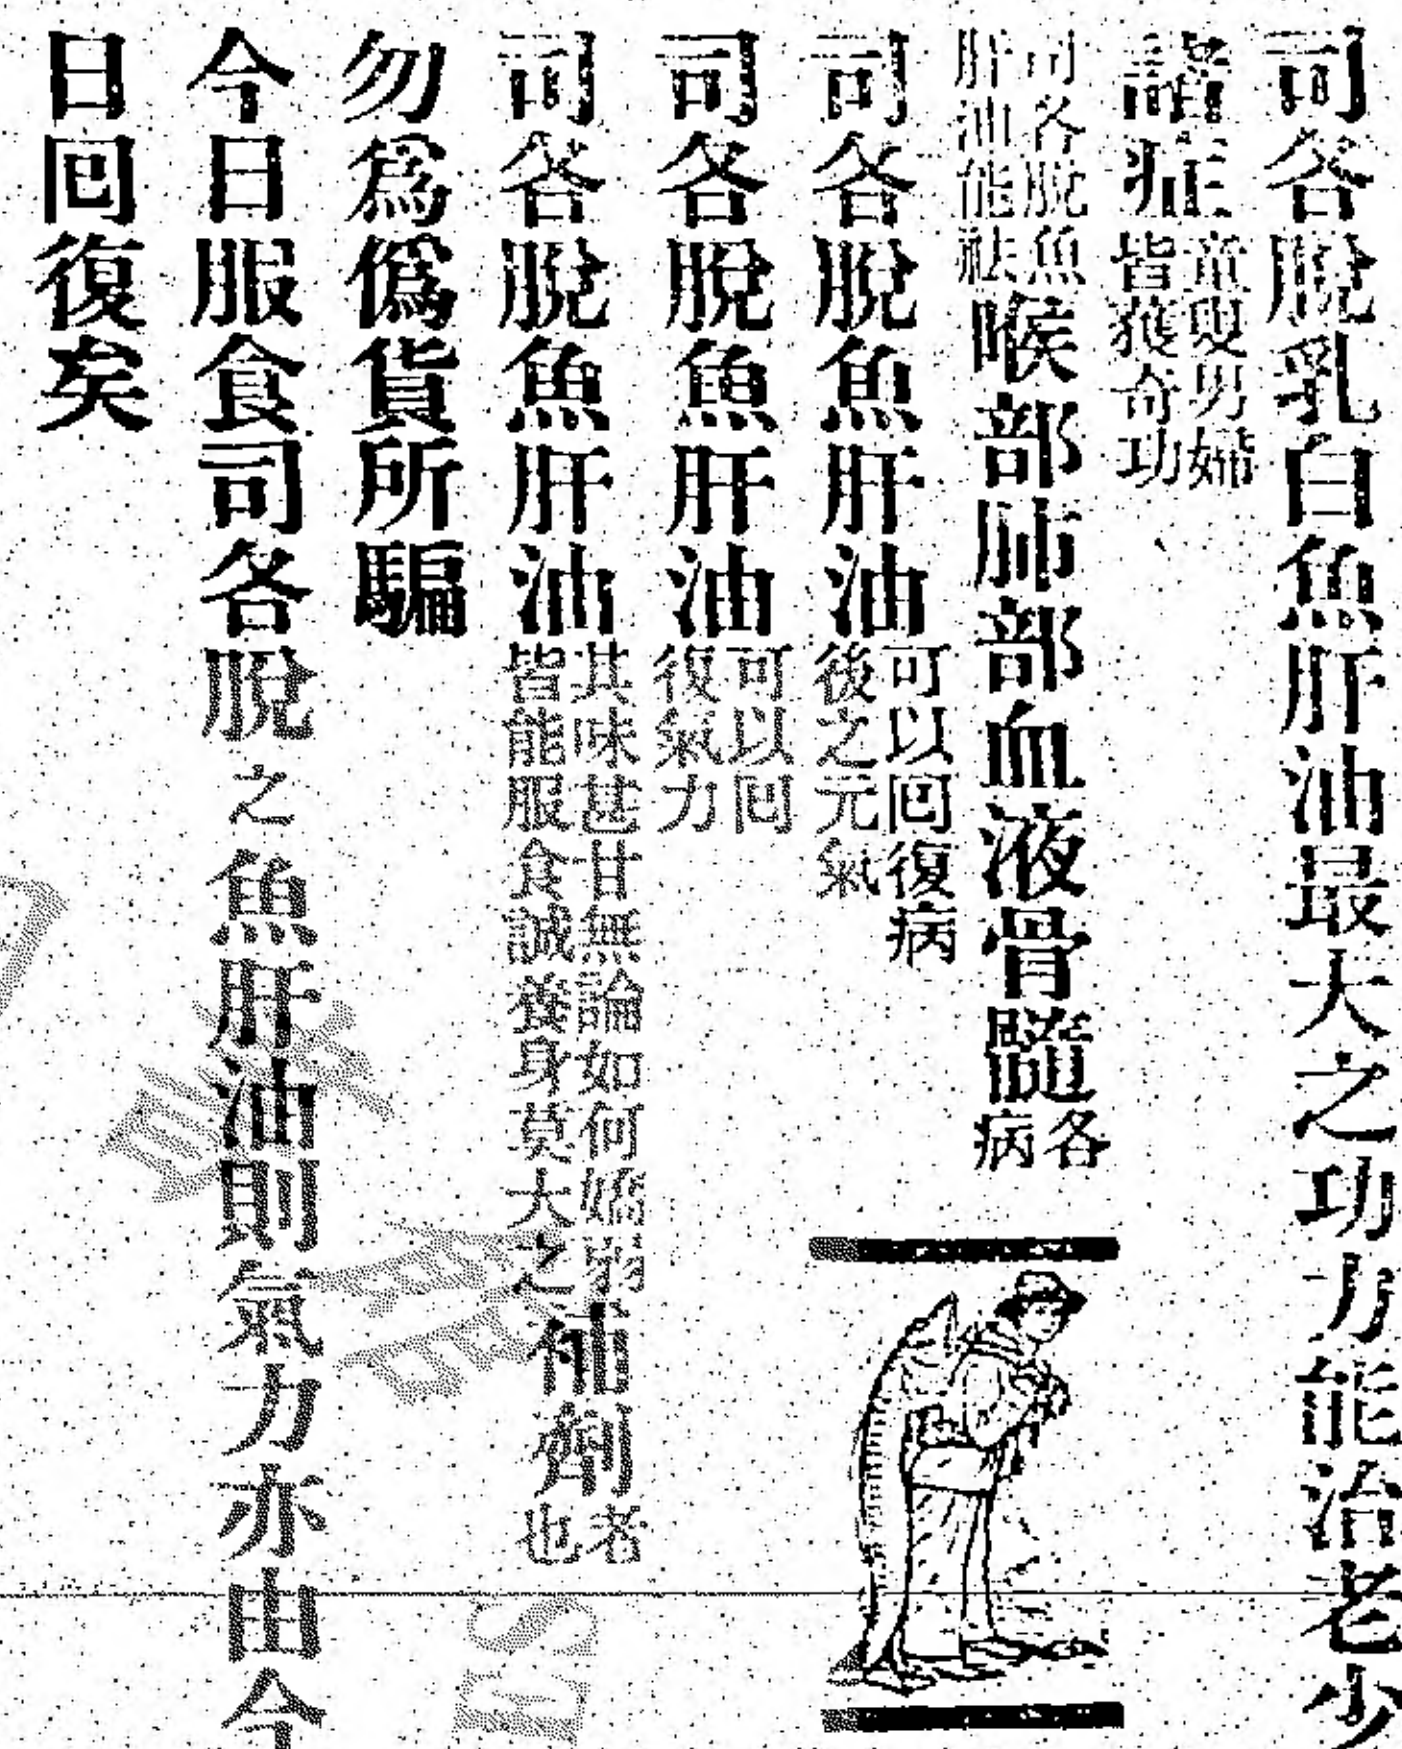 司各脫乳白魚肝油最大之功力能治老少
諸症童叟男婦皆獲奇功
司各脫魚肝油能祛喉部肺部血液骨髓各病
司各脫魚肝油可以回復病後之元氣
司各脫魚肝油可以回復氣力
司各脫魚肝油其味甚甘無論如何嬌弱皆能服食誠養身莫大之補劑也老
勿爲僞貨所騙
今日服食司各脫之魚肝油則氣力亦由今
日回復矣